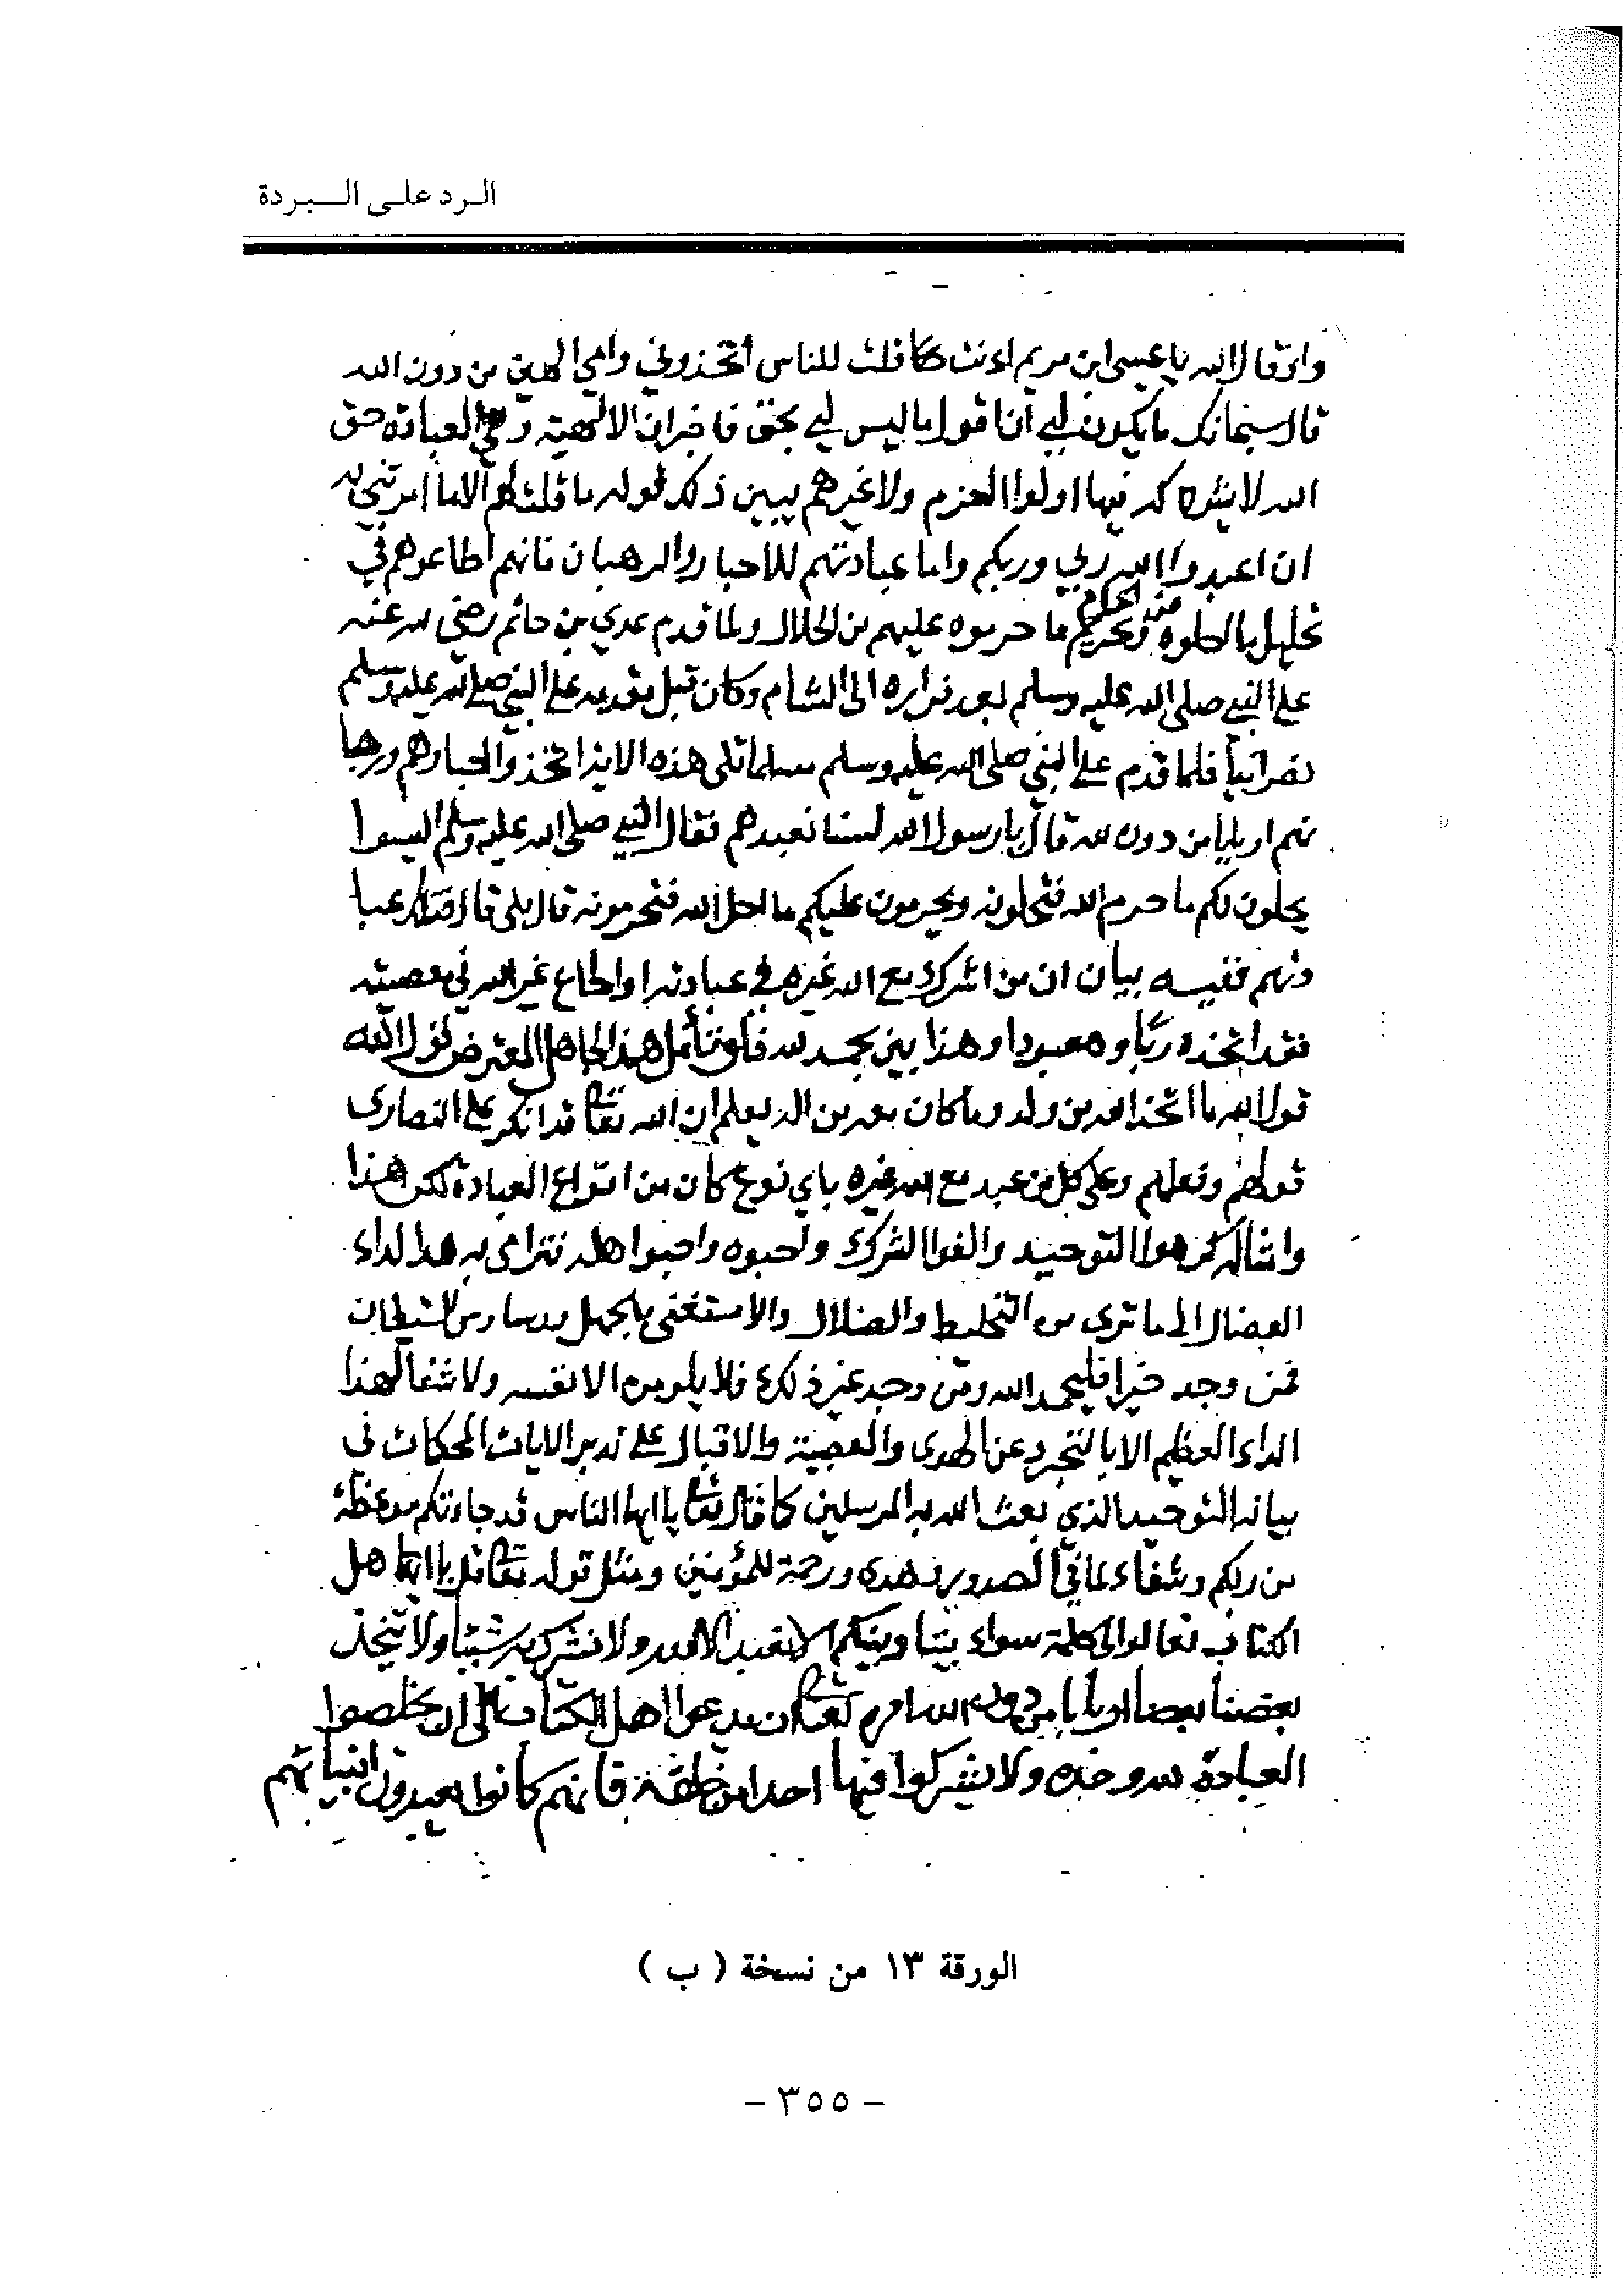 الرد على البردة
واذ قال الله يا عيسى ابن مريم اءنت قلت للناس اتخذوني وامي الهين من دون الله
قال سبحانك ما يكون لي أن اقول ما ليس لي بحق فاخبر ان الالهية وهي العبادة حق
الله لا يشركه فيها اولوا العزم ولا غيرهم يبين ذلك قوله ما قلت لهم الا ما امرتني به
ان اعبدوا الله ربي وربكم واما عبادتهم للاحبار والرهبان فانهم اطاعوهم في
تحليل ما احلوه من الحرام وتحريم ما حرموه عليهم من الحلال ولما قدم عدي بن حاتم رضي الله عنه
على النبي صلى الله عليه وسلم بعد فراره الى الشام وكان قبل مقدمه على النبي صلى الله عليه وسلم
نصرانيا فلما قدم على النبي صلى الله عليه وسلم مسلما تلى هذه الاية اتخذوا احبارهم ورهبا
نهم اربابا من دون الله قال يا رسول الله لسنا نعبدهم فقال النبي صلى الله عليه وسلم اليسوا
يحلون لكم ما حرم الله فتحلونه ويحرمون عليكم ما احل الله فتحرمونه قال بلى قال فتلك عبا
دتهم ففيه بيان ان من اشرك مع الله غيره في عبادته او اطاع غير الله في معصيته
فقد اتخذه ربّا ومعبودا وهذا بين بحمد لله فلو تأمل هذا الجاهل المعترض قول الله
قول الله ما اتخذ الله من ولد وما كان معه من اله يعلم ان الله تعا قد انكر على النصارى
قولهم وفعلهم وعلى كل من عبد مع الله غيره باي نوع كان من انواع العبادة لكن هذا
وامثاله كرهوا التوحيد والفوا الشرك واحبوه واحبوا اهله فترامى به هذا الداء
العضال الى ما ترى من التخليط والضلال والاستغنى بالجهل ووساوس الشيطان
فمن وجد خيرا فليحمد الله ومن وجد غير ذلك فلا يلومن الا نفسه ولا شفا لهذا
الداء العظيم الا بالتجرد عن الهوى والعصبية والاقبال على تدبر الايات المحكمات في
بيانه التوحيد الذي بعث الله به المرسلين كما قال تعا يا ايها الناس قد جاءتكم موعظة
من ربكم وشفاء لما في الصدور وهدى ورحمة للمؤمنين ومثل قوله تعا قل يا اهل
الكتاب تعالوا الى كلمة سواء بيننا وبينكم الا نعبد الا الله ولا نشرك به شيئا ولا يتخذ
بعضنا بعضا اربابا من دون الله امره تعا ان يدعوا اهل الكتاب الى ان يخلصوا
العبادة لله وحده ولا يشركوا فيها احدا من خلقه فانهم كانوا يعبدون انبيائهم
الورقة ١٣ من نسخة ( ب )
- ٣٥٥ -